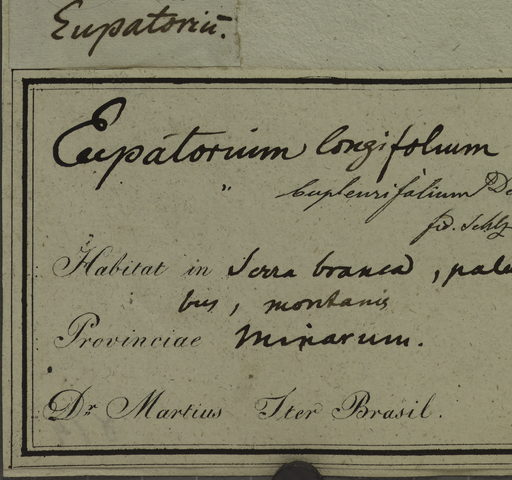 Eupatoriū.
Eupatorium longifolium
" bupleurifolium D
fid. Schlz
Habitat in Serra branca, palu
bus, montanis
Provinciae Minarum.
Dr Martius Iter Brasil.